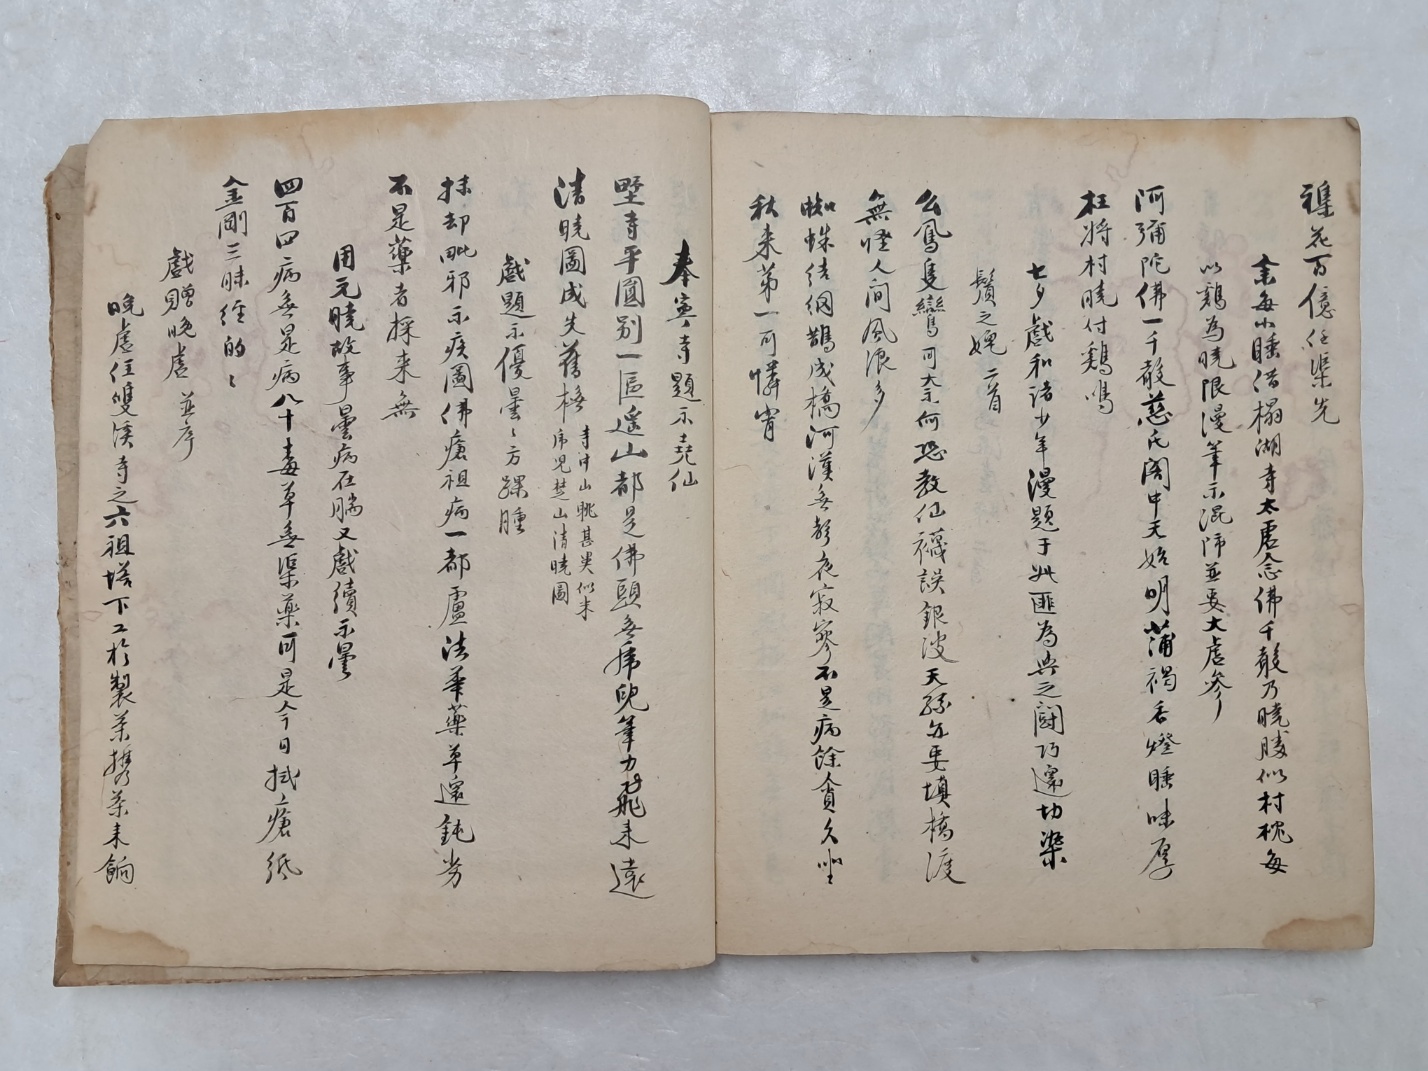 雜花百億任渠先
金每小睡借榻湖寺太虛念佛千聲乃曉勝似村枕每
以鷄為曉限漫筆示混師並要太虛參
阿彌陀佛一千聲慈氏閣中天始明蒲褐香燈睡味厚
枉將村曉付鷄鳴
七夕戲和諸少年漫題于此匪為與之鬪巧還切染
鬚之媿 二首
幺鳳隻鸞可奈何恐教仙襪誤銀波天孫亦要塡橋渡
無怪人间風浪多
蜘蛛结網鵲成橋河漢無聲夜寂寥不是病餘貪久坐
秋来第一可憐宵
奉寅寺題示堯仙
野寺平圓別一區遙山都是佛頭無虎兒筆力飛来遠
清曉圖成失舊格 寺中山眺甚類似米
虎兒楚山清曉圖
戲題示優曇〻方踝腫
抹却毗邪示疾圖佛瘡祖病一都盧法華藥草還鈍劣
不是藥者採来無
用元曉故事曇病在腨又戲續示曇
四百四病無是病八十毒草無渠藥可是今日拭瘡紙
金剛三昧經的〻
戲贈晚虛 並序
晚虛住雙溪寺之六祖塔下工於製茶携茶来餉